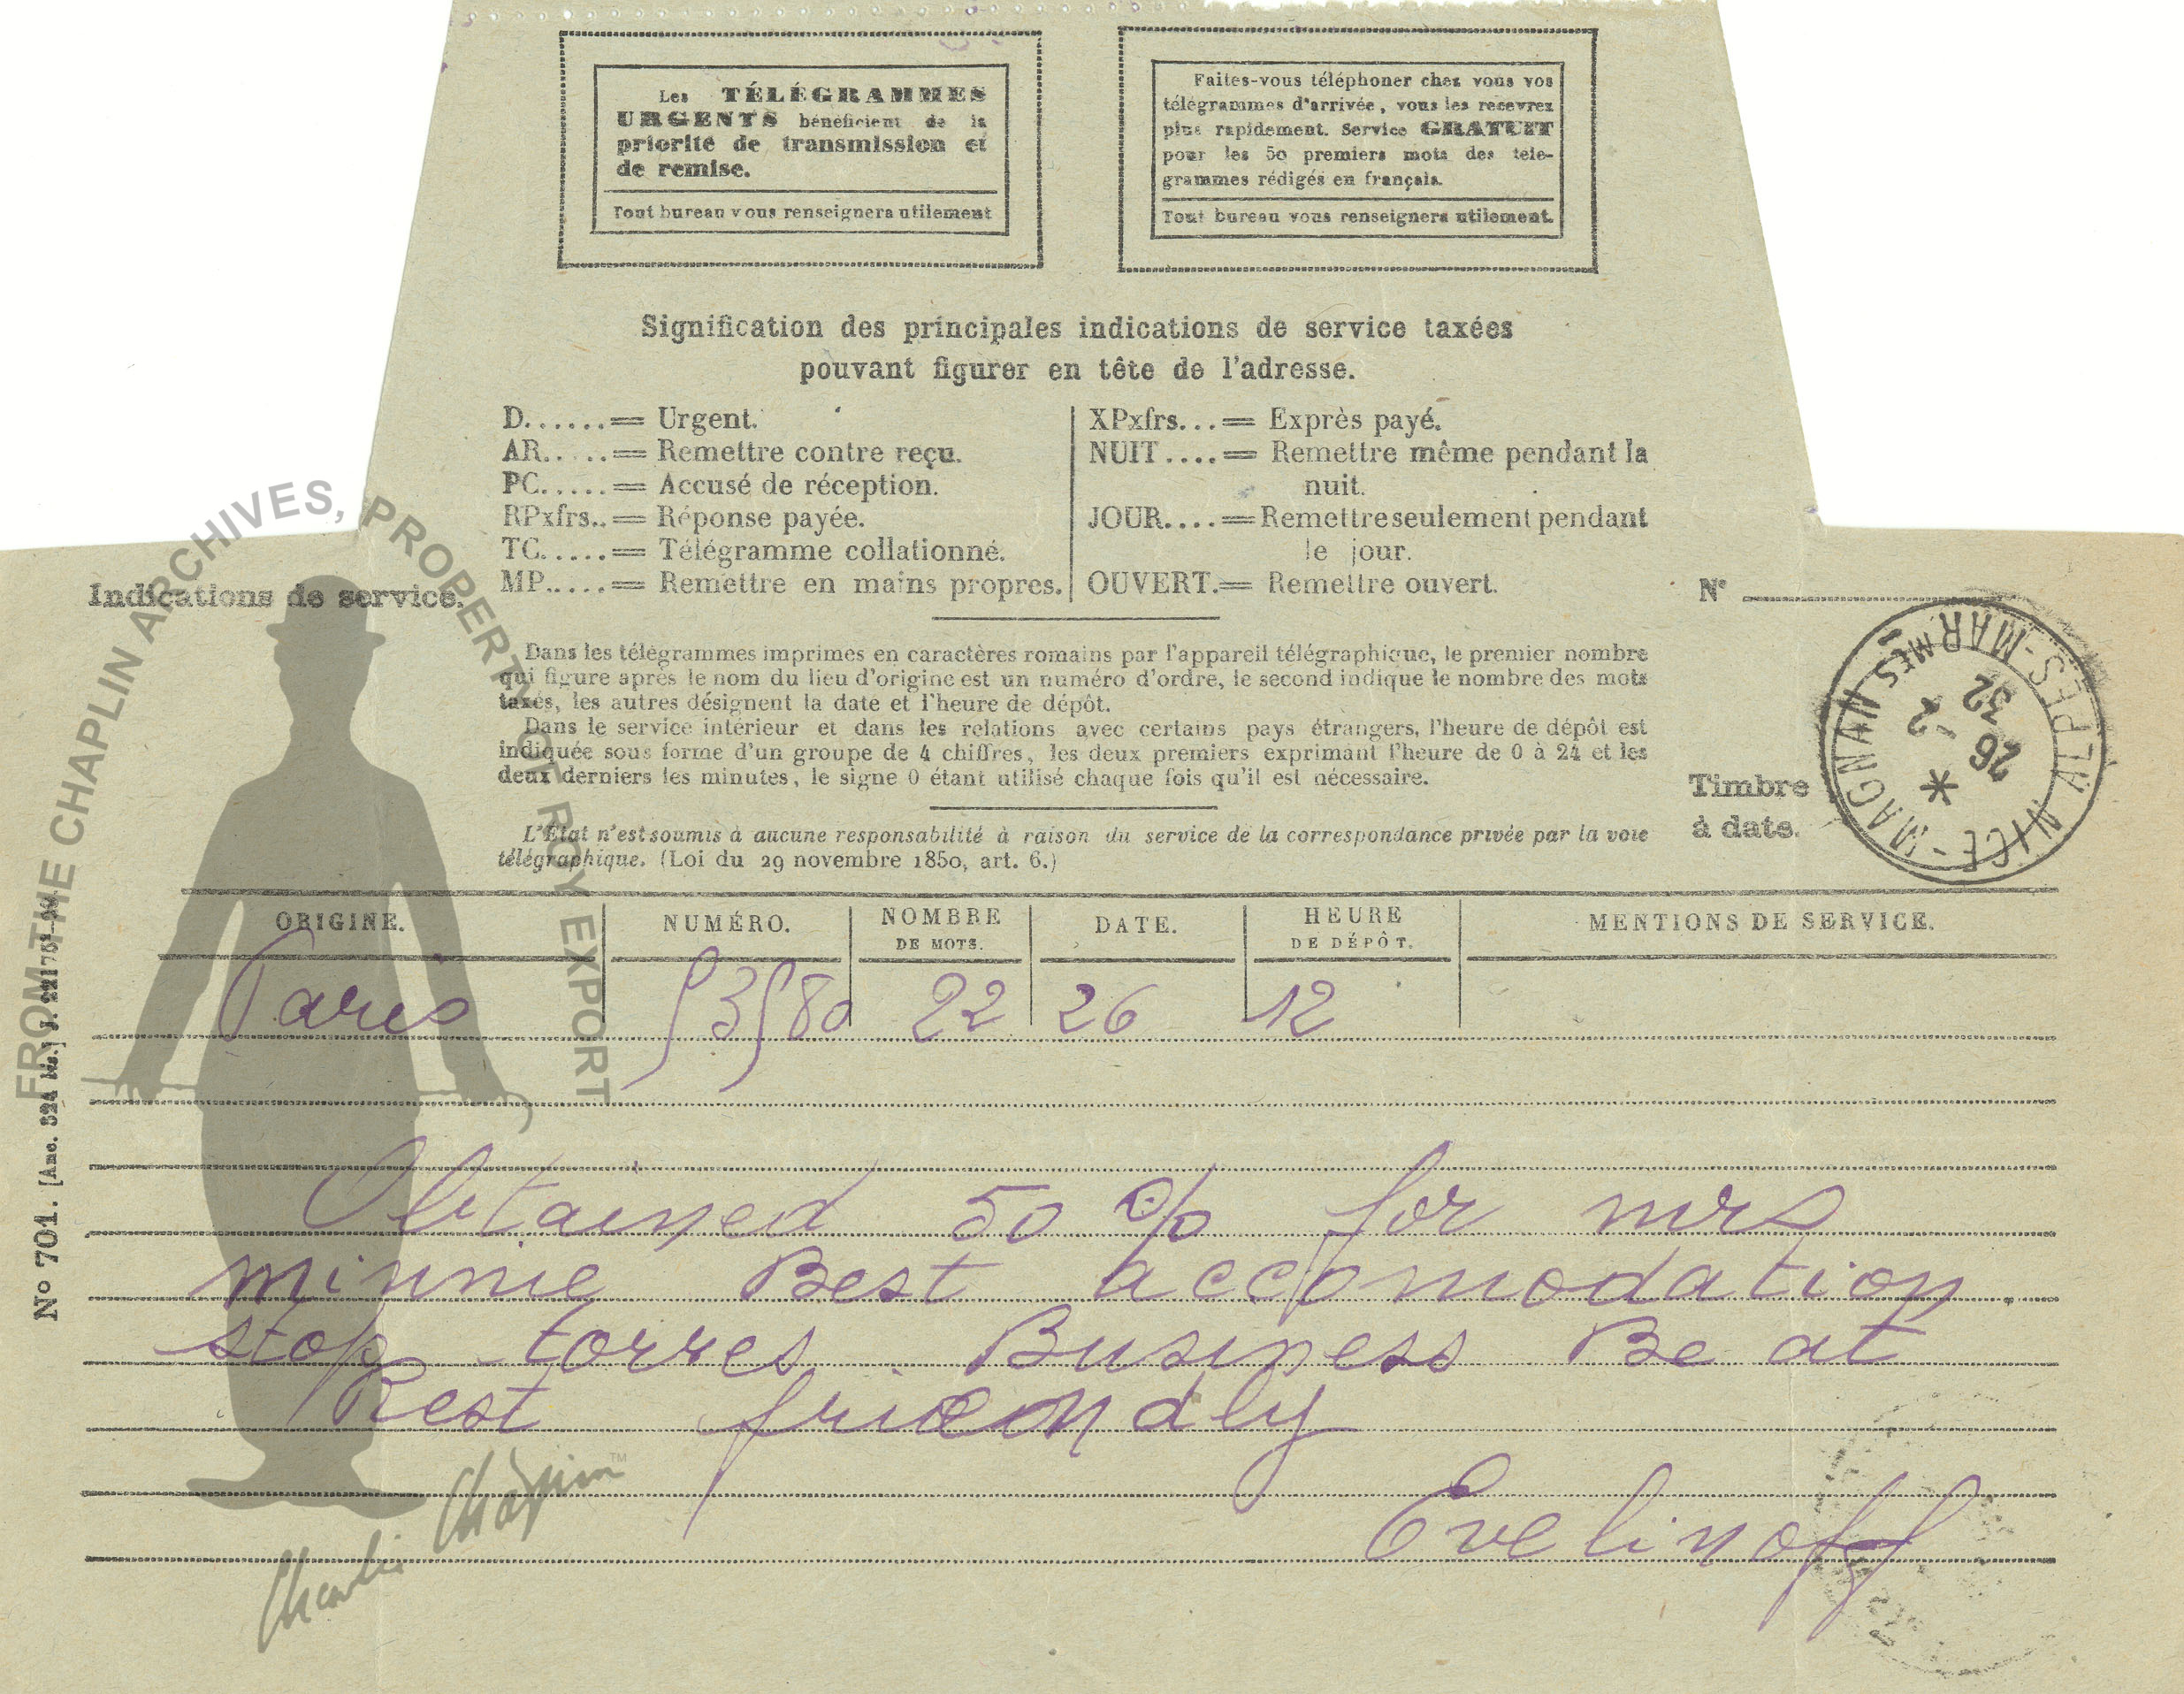 Les TÉLÉGRAMMES
URGENTS bénéficient de la
priorité de transmission et
de remise.
Tout bureau vous renseignera utilement
Faites-vous téléphoner chez vous vos
télégrammes d'arrivée, vous les recevrez
plus rapidement. Service GRATUIT
pour les 50 premiers mots des télé-
grammes rédigés en français.
Tout bureau vous renseignera utilement.
Signification des principales indications de service taxées
pouvant figurer en tête de l'adresse.
D......= Urgent.
AR.....= Remettre contre reçu.
PC.....= Accusé de réception.
RPxfrs..= Réponse payée.
TC.....= Télégramme collationné.
MP.....= Remettre en mains propres.
XPxfrs...= Exprès payé.
NUIT....= Remettre même pendant la
nuit.
JOUR....= Remettre seulement pendant
le jour.
OUVERT.= Remettre ouvert.
Indications de service.
N°
Dans les télégrammes imprimés en caractères romains par l'appareil télégraphique, le premier nombre
qui figure après le nom du lieu d'origine est un numéro d'ordre, le second indique le nombre des mots
taxés, les autres désignent la date et l'heure de dépôt.
Dans le service intérieur et dans les relations avec certains pays étrangers, l'heure de dépôt est
indiquée sous forme d'un groupe de 4 chiffres, les deux premiers exprimant l'heure de 0 à 24 et les
deux derniers les minutes, le signe 0 étant utilisé chaque fois qu'il est nécessaire.
L'État n'est soumis à aucune responsabilité à raison du service de la correspondance privée par la voie
télégraphique. (Loi du 29 novembre 1850, art. 6.)
Timbre
à date.
NICE-MAGNAN
ALPES-MARMES
26
-2
32
ORIGINE.
NUMÉRO.
NOMBRE
DE MOTS.
DATE.
HEURE
DE DÉPÔT.
MENTIONS DE SERVICE.
Paris 53580 22 26 12
Obtained 50 % for mrs
minnie Best accomodation
stop torres Business Be at
Rest friendly
Evelinoff
N° 701. [Anc. 324
FROM THE CHAPLIN ARCHIVES, PROPERTY OF ROY EXPORT
Charlie Chaplin™